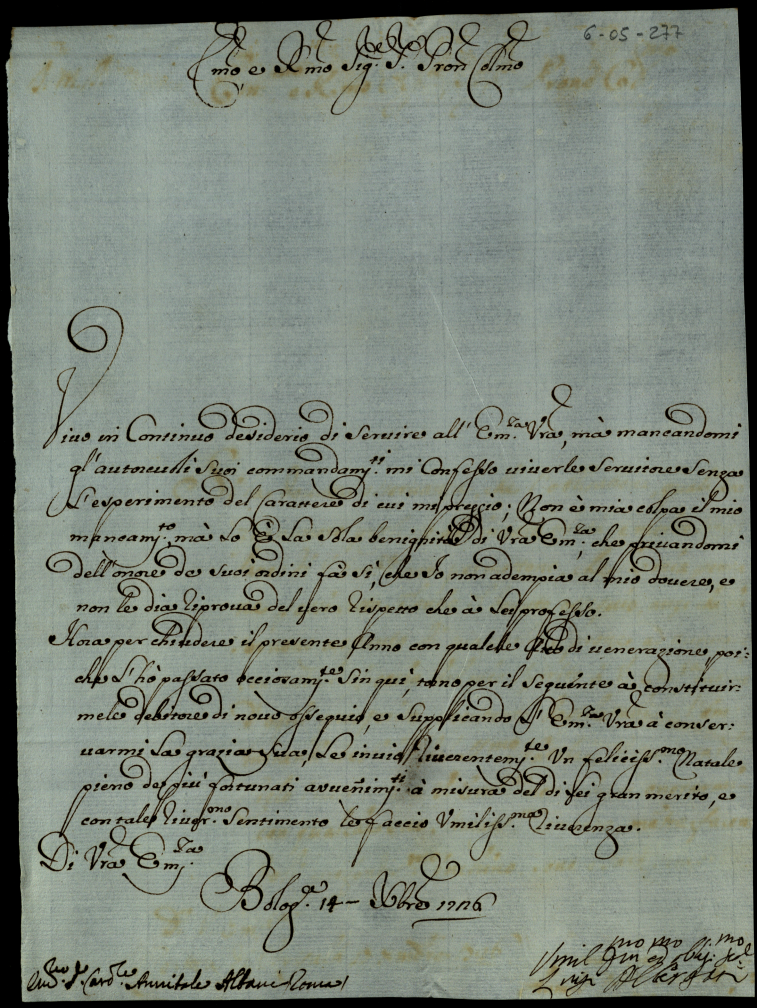 6-05-277
Em͞o e Rm͞o Sig.r P.ron Colm͞o
Vivo in Continuo desiderio di servire all' Em.za Vra, mà mancandomi
gl' autorevoli suoi commandam.ti mi Confesso viverle servitore senza
L'esperimento del Carattere di cui mi preggio; Non è mia colpa il mio
mancam.to, mà Lo è La Sola benignità di Vra Em.za, che privandomi
dell' onore de suoi ordini fà sì, che Io non adempia al mio dovere, e
non le dia riprova del vero rispetto che à Lei professo.
Hora per chiudere il presente Anno con qualche Atto di venerazione, poi-
che L'hò passato occiosam.te sin quì, torno per il seguente à constituir-
mele debitore di novo ossequio, e supplicando L' Em.za Vra à conser-
varmi La grazia sua, Le invio riverentem.te Un feliciss.mo Natale
pieno de più fortunati avvenim.ti à misura del di Lei gran merito, e
con tale river.mo Sentimento Le faccio Umiliss.ma riverenza.
Di Vra Em.za
Bolog.a 14 - Xbre 1716
Sig.r Card.le Annibale Albani Roma
Umil.mo D.mo ed Obl.mo
Luigi